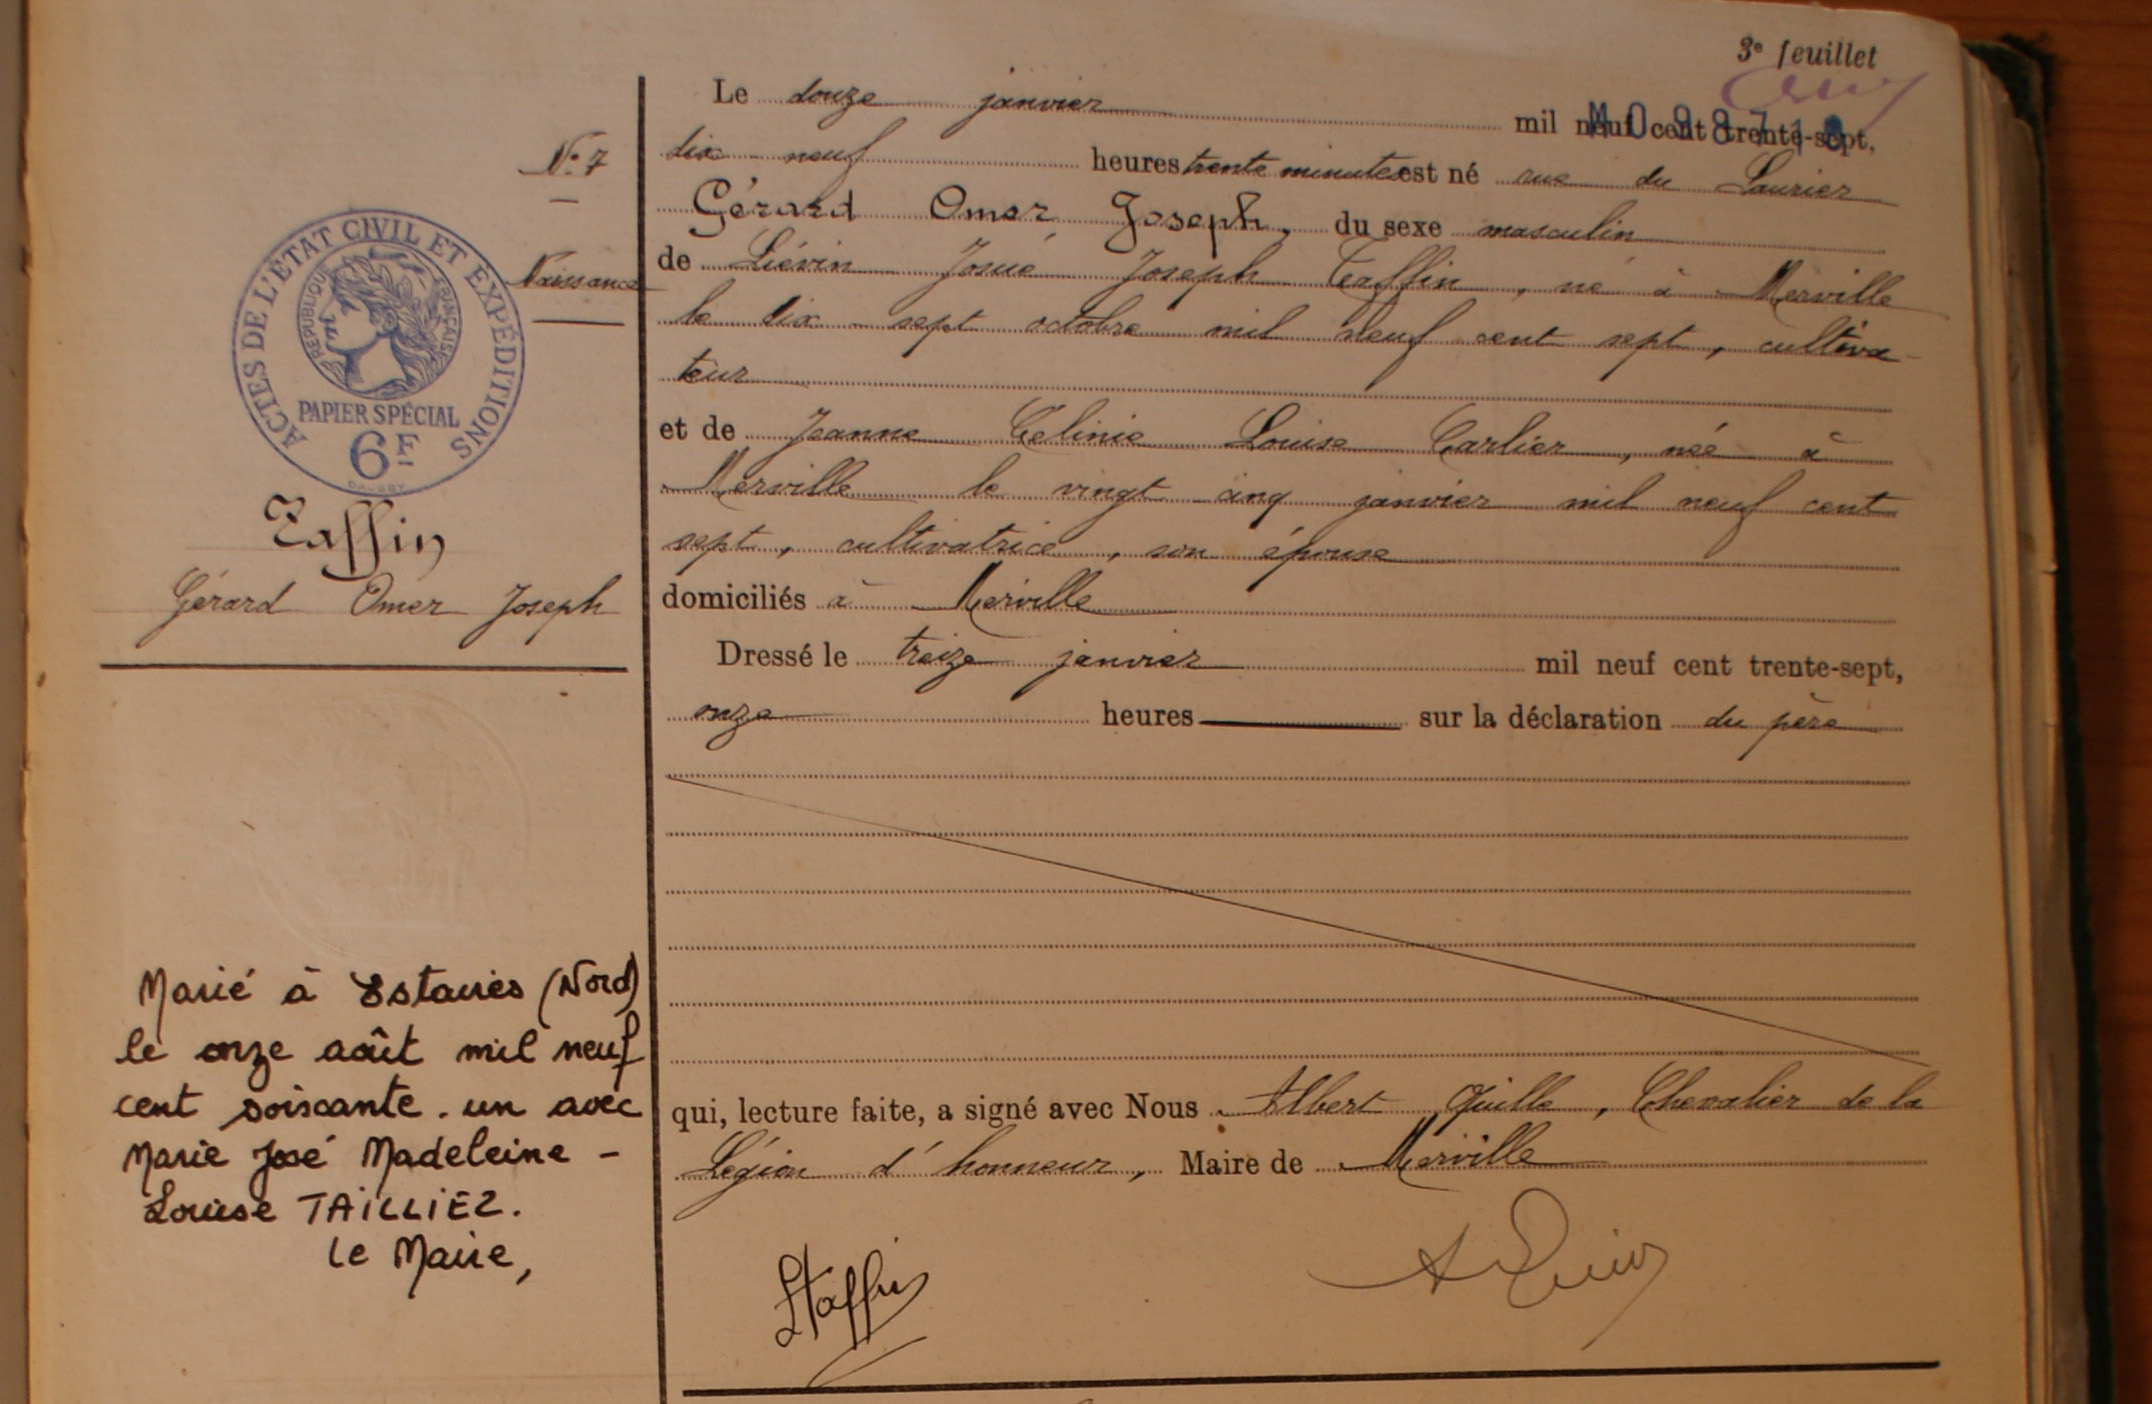 3e feuillet
Le douze janvier mil neuf cent trente-sept,
N° 7
dix neuf heures trente minutes est né rue du Laurier
Gérard Omer Joseph, du sexe masculin
Naissance
de Liévin Josué Joseph Taffin, né à Merville
le dix-sept octobre mil neuf cent sept, cultiva-
teur
ACTES DE L'ÉTAT CIVIL ET EXPÉDITIONS
RÉPUBLIQUE FRANÇAISE
PAPIER SPÉCIAL
6F
et de Jeanne Célinie Louise Carlier, née à
Merville le vingt cinq janvier mil neuf cent
sept, cultivatrice, son épouse
Taffin
Gérard Omer Joseph
domiciliés à Merville
Dressé le treize janvier mil neuf cent trente-sept,
onze heures sur la déclaration du père
Marié à Estaires (Nord)
le onze août mil neuf
cent soixante. un avec
Marie José Madeleine -
Louise TAILLIEZ.
Le Maire,
qui, lecture faite, a signé avec Nous Albert Quille, Chevalier de la
Légion d'honneur, Maire de Merville
LTaffin